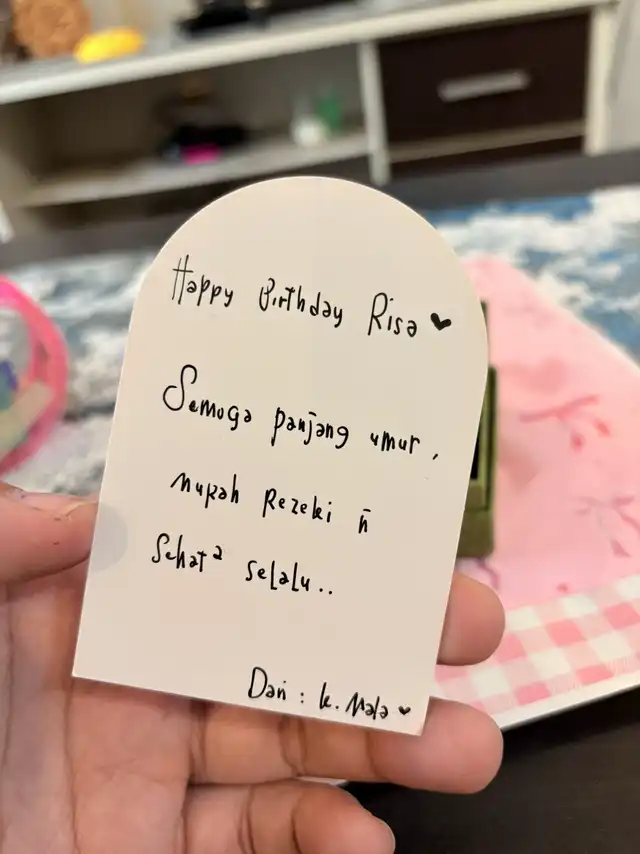 Happy Birthday Risa ♥
Semoga panjang umur,
murah Rezeki n̄
Sehat² selalu..
Dari : k. Mala ♥